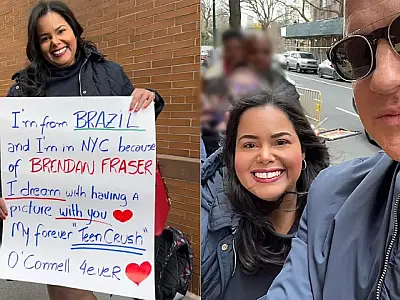 I'm from BRAZIL
and I'm in NYC because
of BRENDAN FRASER
I dream with having a
picture with you
My forever "Teen Crush"
O'Connell 4ever